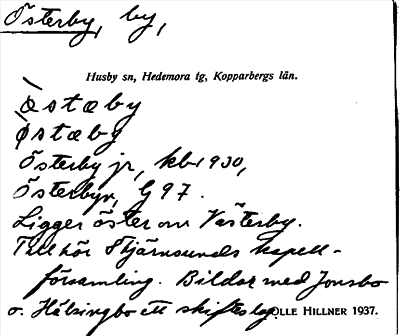 Österby, by,
Husby sn, Hedemora tg, Kopparbergs län.
Òstæby
Østæby
Österby jr, kb 1930,
Österbyn, G 97.
Ligger öster om Västerby.
Tillhör Stjärnsunds kapell-
församling. Bildar med Jonsbo
o. Hälsingbo ett skifteslag.
OLLE HILLNER 1937.